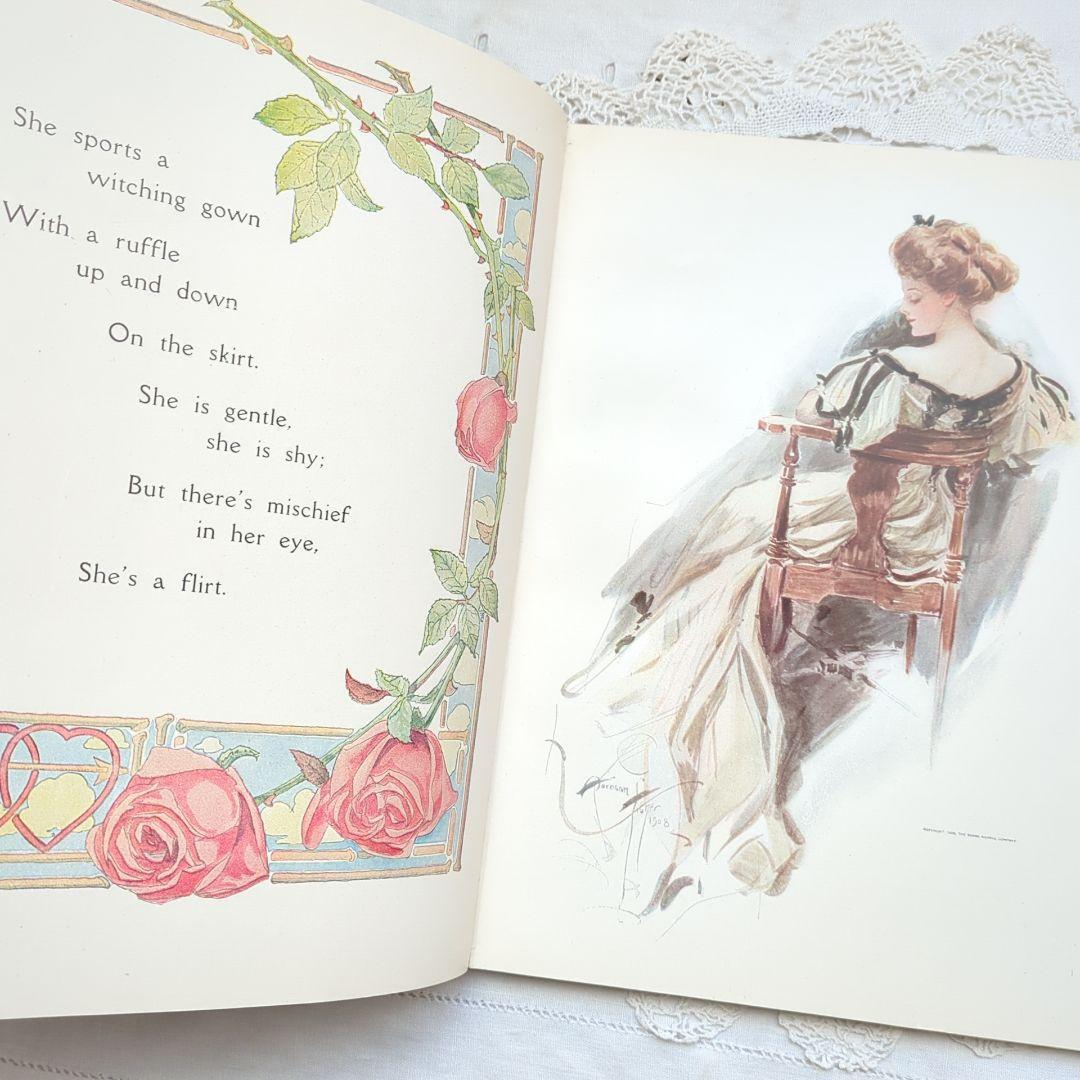 She sports a
witching gown
With a ruffle
up and down
On the skirt.
She is gentle,
she is shy;
But there's mischief
in her eye,
She's a flirt.
Harrison
Fisher
1908